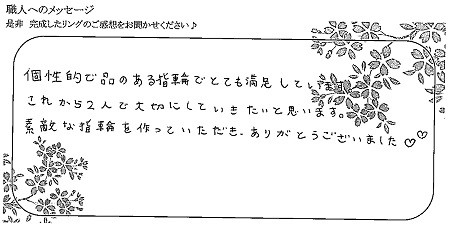 職人へのメッセージ
是非 完成したリングのご感想をお聞かせください♪
個性的で品のある指輪でとても満足しています。
これから2人で大切にしていきたいと思います。
素敵な指輪を作っていただき、ありがとうございました♡♡